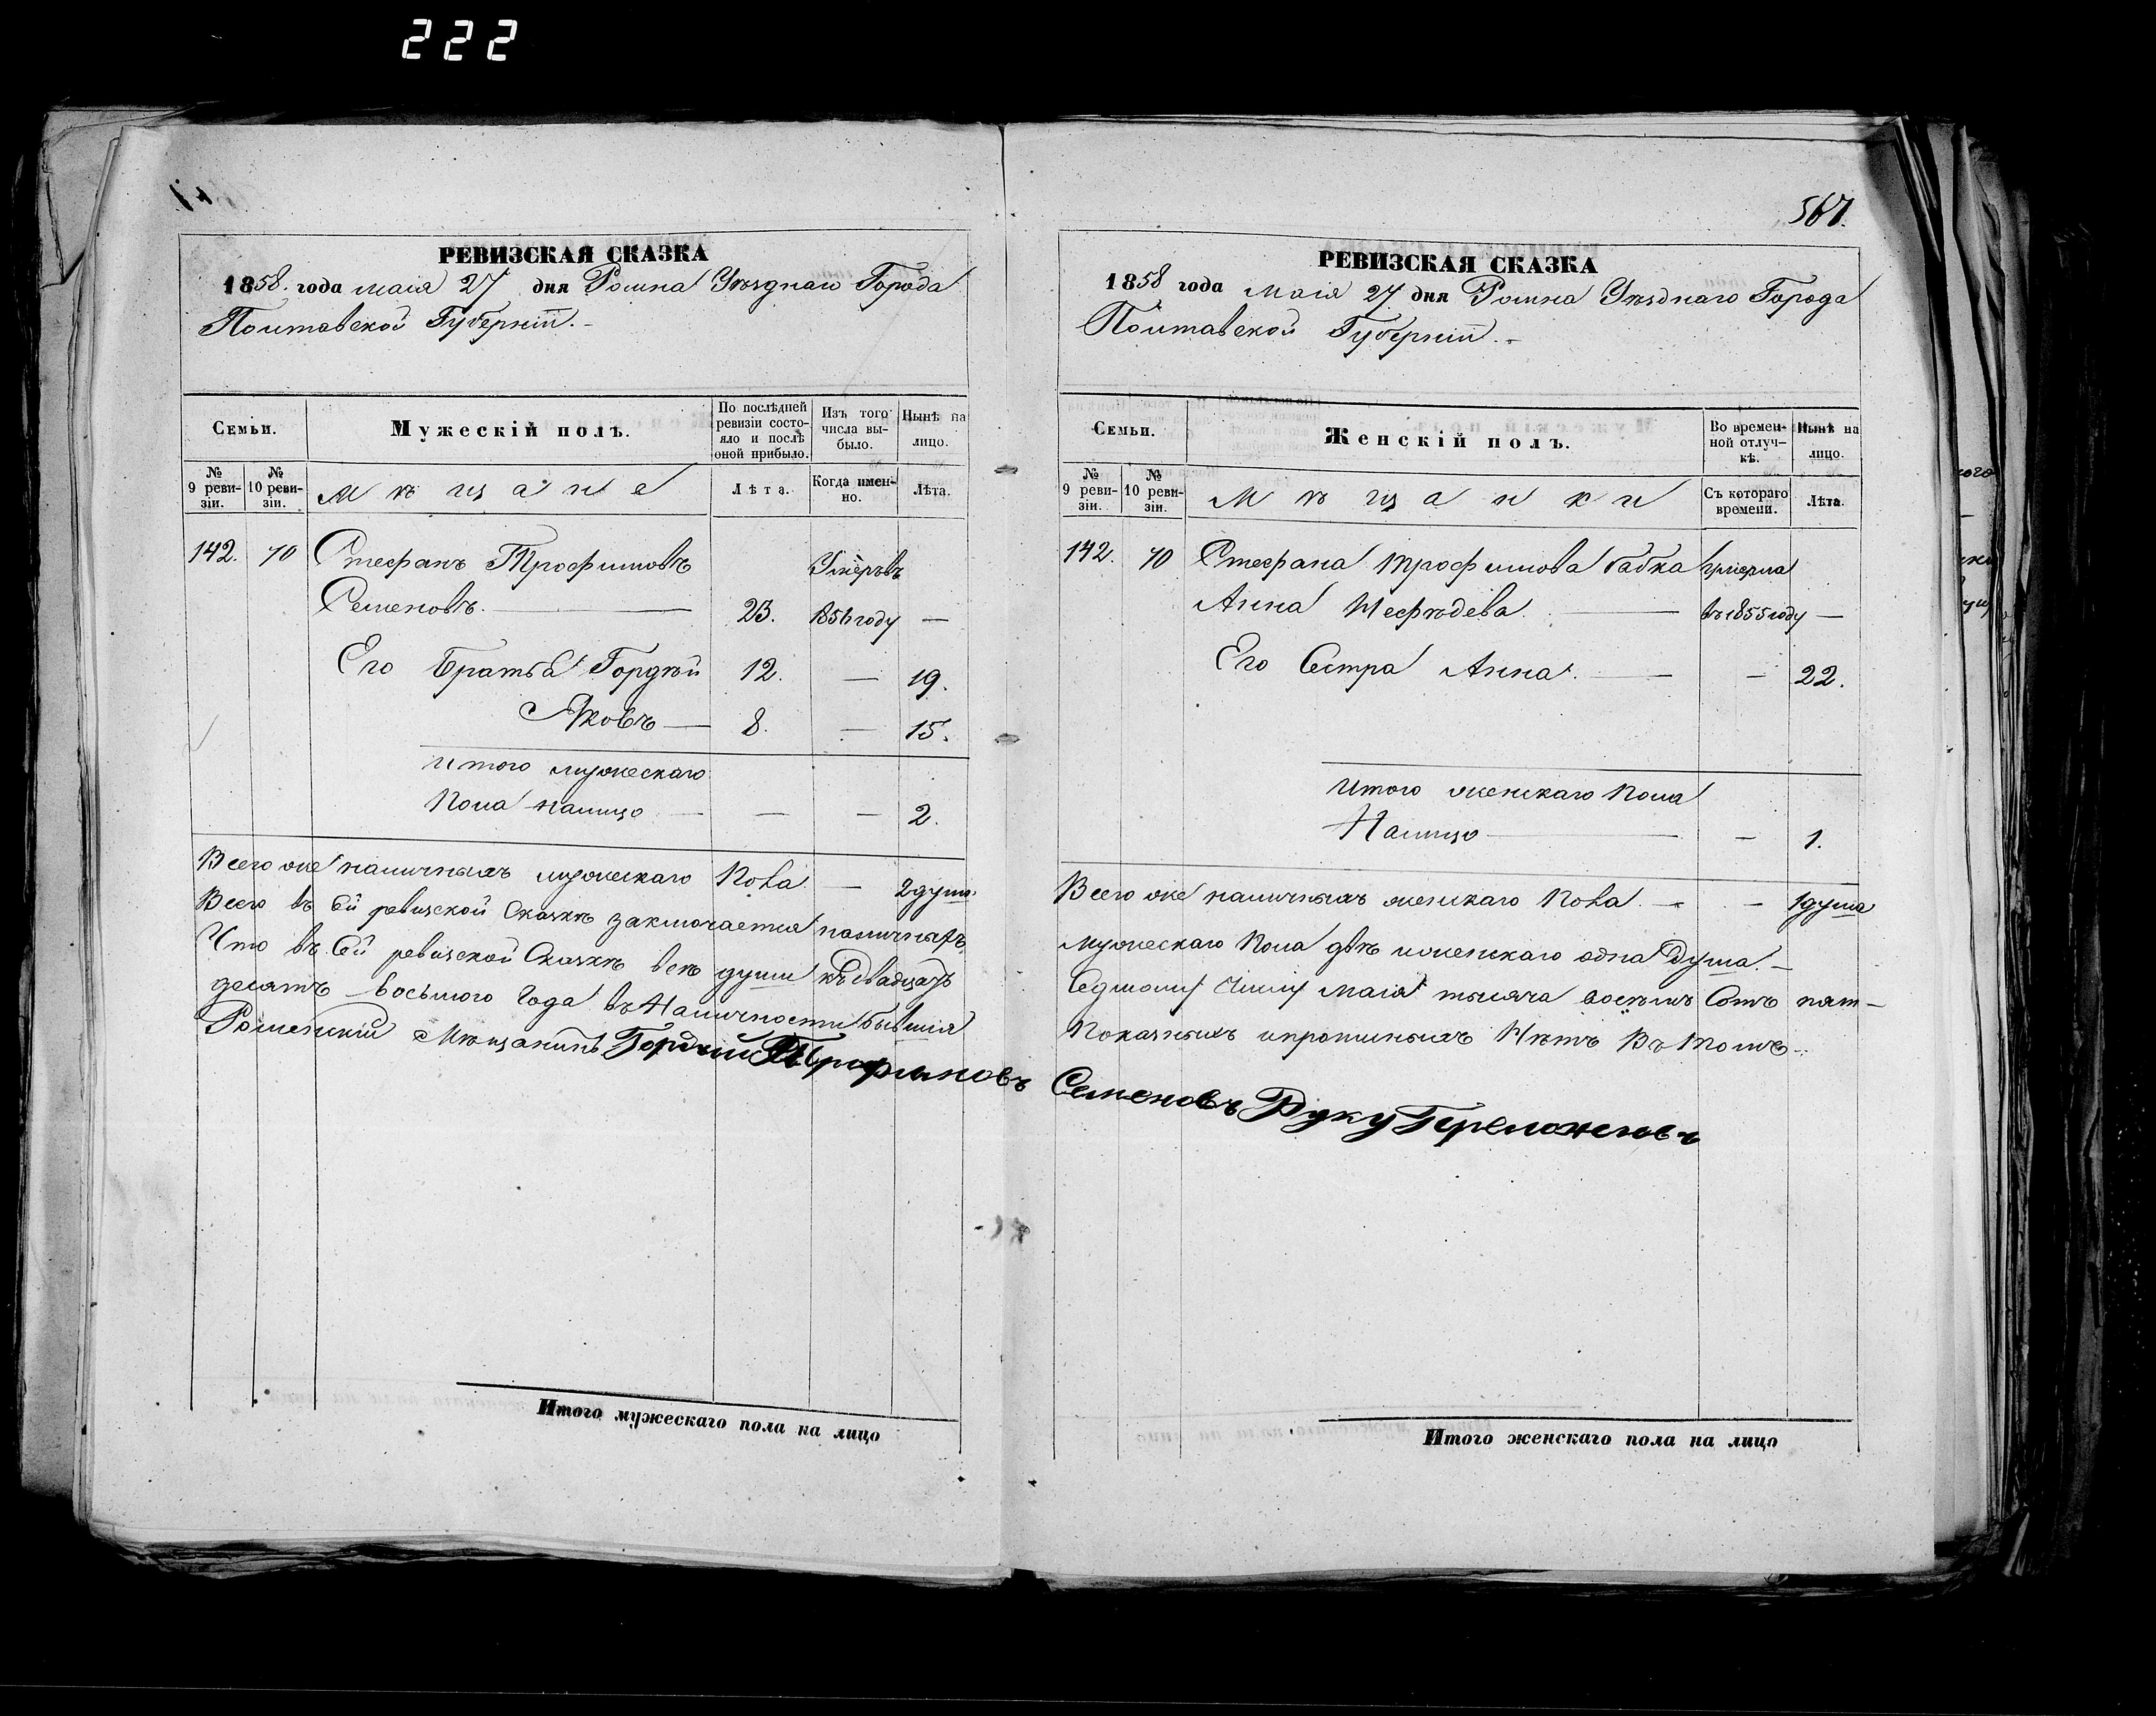 222
567.
РЕВИЗСКАЯ СКАЗКА
1858. года маія 27 дня Ромна Уѣзднаго Города
Полтавской Губерніи.-
Семьи.
Мужескій полъ.
По послѣдней ревизіи состояло и послѣ оной прибыло.
Изъ того числа выбыло.
Нынѣ на лицо.
№ 9 ревизіи.
№ 10 ревизіи.
Мѣщане
Лѣта.
Когда именно.
Лѣта.
142. 70 Стефанъ Трофимовъ Умеръвъ
Семеновъ. — 23. 1856 году —
Его Братья Гордѣй 12. — 19.
Яковъ — 8. — 15.
Итого мужескаго
Пола налицо — — — 2.
Всего же наличныхъ мужескаго Пола — 2 души.
Всего въ сей ревизской Сказкѣ заключается наличныхъ
Что въ Сей ревизской Сказкѣ всѣ души къ двадцать
десятъ восьмого Года въ Наличности бывшія
Роменскій Мѣщанинъ Гордѣй Трофимовъ
Итого мужескаго пола на лицо
РЕВИЗСКАЯ СКАЗКА
1858 года Маія 27 дня Ромна Уѣзднаго Города
Полтавской Губерніи.-
Семьи.
Женскій полъ.
Во временной отлучкѣ.
Нынѣ на лицо.
№ 9 ревизіи.
№ 10 ревизіи.
Мѣщанки
Съ котораго времени.
Лѣта.
142. 70 Стефана Трофимова бабка Умерла
Анна Нефѣдева. — въ 1855 году —
Его Сестра Анна. — — 22.
Итого женскаго Пола
Налицо — — 1.
Всего же наличныхъ женскаго Пола. — — 1 душа
мужескаго Пола двѣ и женскаго одна душа.—
Седмому Числу Маія тысяча восемъ Сотъ пят-
Показныхъ и прописныхъ Нѣтъ Въ томъ
Семеновъ Руку Приложилъ
Итого женскаго пола на лицо